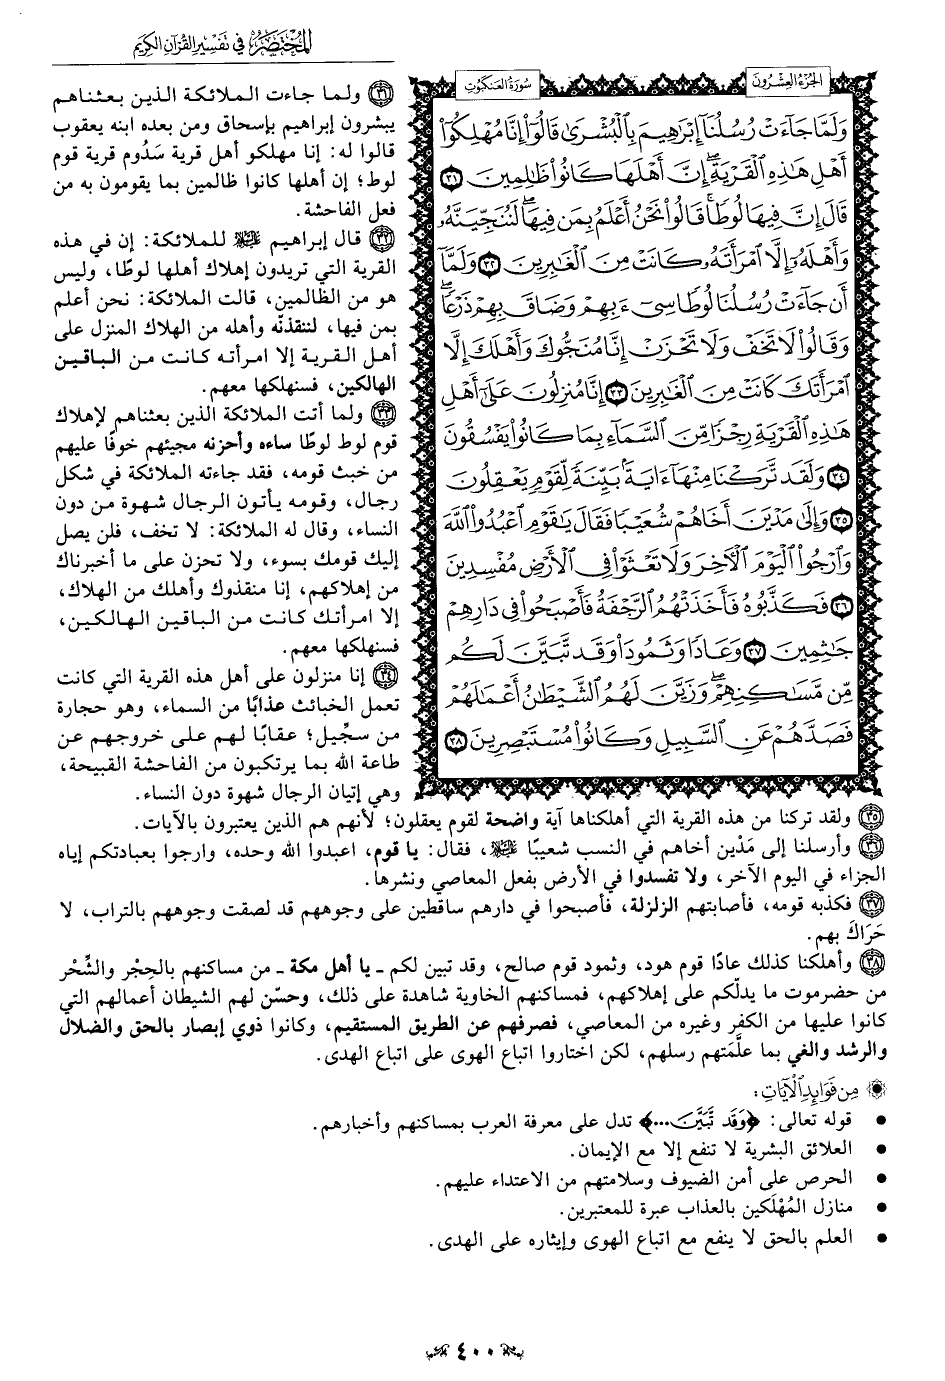 المختصر في تفسير القرآن الكريم
الجزء العشرون
سورة العنكبوت
وَلَمَّا جَآءَتۡ رُسُلُنَآ إِبۡرَٰهِيمَ بِٱلۡبُشۡرَىٰ قَالُوٓاْ إِنَّا مُهۡلِكُوٓاْ
أَهۡلِ هَٰذِهِ ٱلۡقَرۡيَةِۖ إِنَّ أَهۡلَهَا كَانُواْ ظَٰلِمِينَ ٣١
قَالَ إِنَّ فِيهَا لُوطٗاۚ قَالُواْ نَحۡنُ أَعۡلَمُ بِمَن فِيهَاۖ لَنُنَجِّيَنَّهُۥ
وَأَهۡلَهُۥٓ إِلَّا ٱمۡرَأَتَهُۥ كَانَتۡ مِنَ ٱلۡغَٰبِرِينَ ٣٢ وَلَمَّآ
أَن جَآءَتۡ رُسُلُنَا لُوطٗا سِيٓءَ بِهِمۡ وَضَاقَ بِهِمۡ ذَرۡعٗاۖ
وَقَالُواْ لَا تَخَفۡ وَلَا تَحۡزَنۡ إِنَّا مُنَجُّوكَ وَأَهۡلَكَ إِلَّا
ٱمۡرَأَتَكَ كَانَتۡ مِنَ ٱلۡغَٰبِرِينَ ٣٣ إِنَّا مُنزِلُونَ عَلَىٰٓ أَهۡلِ
هَٰذِهِ ٱلۡقَرۡيَةِ رِجۡزٗا مِّنَ ٱلسَّمَآءِ بِمَا كَانُواْ يَفۡسُقُونَ
٣٤ وَلَقَد تَّرَكۡنَا مِنۡهَآ ءَايَةَۢ بَيِّنَةٗ لِّقَوۡمٖ يَعۡقِلُونَ
٣٥ وَإِلَىٰ مَدۡيَنَ أَخَاهُمۡ شُعَيۡبٗا فَقَالَ يَٰقَوۡمِ ٱعۡبُدُواْ ٱللَّهَ
وَٱرۡجُواْ ٱلۡيَوۡمَ ٱلۡأٓخِرَ وَلَا تَعۡثَوۡاْ فِي ٱلۡأَرۡضِ مُفۡسِدِينَ
٣٦ فَكَذَّبُوهُ فَأَخَذَتۡهُمُ ٱلرَّجۡفَةُ فَأَصۡبَحُواْ فِي دَارِهِمۡ
جَٰثِمِينَ ٣٧ وَعَادٗا وَثَمُودَاْ وَقَد تَّبَيَّنَ لَكُم
مِّن مَّسَٰكِنِهِمۡۖ وَزَيَّنَ لَهُمُ ٱلشَّيۡطَٰنُ أَعۡمَٰلَهُمۡ
فَصَدَّهُمۡ عَنِ ٱلسَّبِيلِ وَكَانُواْ مُسۡتَبۡصِرِينَ ٣٨
٣١ ولما جاءت الملائكة الذين بعثناهم
يبشرون إبراهيم بإسحاق ومن بعده ابنه يعقوب
قالوا له: إنا مهلكو أهل قرية سَدُوم قرية قوم
لوط؛ إن أهلها كانوا ظالمين بما يقومون به من
فعل الفاحشة.
٣٢ قال إبراهيم ﷺ للملائكة: إن في هذه
القرية التي تريدون إهلاك أهلها لوطًا، وليس
هو من الظالمين، قالت الملائكة: نحن أعلم
بمن فيها، لننقذنّه وأهله من الهلاك المنزل على
أهل القرية إلا امرأته كانت من الباقين
الهالكين، فسنهلكها معهم.
٣٣ ولما أتت الملائكة الذين بعثناهم لإهلاك
قوم لوط لوطًا ساءه وأحزنه مجيئهم خوفًا عليهم
من خبث قومه، فقد جاءته الملائكة في شكل
رجال، وقومه يأتون الرجال شهوة من دون
النساء، وقال له الملائكة: لا تخف، فلن يصل
إليك قومك بسوء، ولا تحزن على ما أخبرناك
من إهلاكهم، إنا منقذوك وأهلك من الهلاك،
إلا امرأتك كانت من الباقين الهالكين،
فسنهلكها معهم.
٣٤ إنا منزلون على أهل هذه القرية التي كانت
تعمل الخبائث عذابًا من السماء، وهو حجارة
من سجِّيل؛ عقابًا لهم على خروجهم عن
طاعة الله بما يرتكبون من الفاحشة القبيحة،
وهي إتيان الرجال شهوة دون النساء.
٣٥ ولقد تركنا من هذه القرية التي أهلكناها آية واضحة لقوم يعقلون؛ لأنهم هم الذين يعتبرون بالآيات.
٣٦ وأرسلنا إلى مَدْين أخاهم في النسب شعيبًا ﷺ، فقال: يا قوم، اعبدوا الله وحده، وارجوا بعبادتكم إياه
الجزاء في اليوم الآخر، ولا تفسدوا في الأرض بفعل المعاصي ونشرها.
٣٧ فكذبه قومه، فأصابتهم الزلزلة، فأصبحوا في دارهم ساقطين على وجوههم قد لصقت وجوههم بالتراب، لا
حَرَاكَ بهم.
٣٨ وأهلكنا كذلك عادًا قوم هود، وثمود قوم صالح، وقد تبين لكم ـ يا أهل مكة ـ من مساكنهم بالحِجْر والشِّحْر
من حضرموت ما يدلّكم على إهلاكهم، فمساكنهم الخاوية شاهدة على ذلك، وحسّن لهم الشيطان أعمالهم التي
كانوا عليها من الكفر وغيره من المعاصي، فصرفهم عن الطريق المستقيم، وكانوا ذوي إبصار بالحق والضلال
والرشد والغي بما علَّمَتهم رسلهم، لكن اختاروا اتباع الهوى على اتباع الهدى.
من فوائد الآيات:
• قوله تعالى: ﴿وَقَد تَّبَيَّنَ...﴾ تدل على معرفة العرب بمساكنهم وأخبارهم.
• العلائق البشرية لا تنفع إلا مع الإيمان.
• الحرص على أمن الضيوف وسلامتهم من الاعتداء عليهم.
• منازل المُهْلَكين بالعذاب عبرة للمعتبرين.
• العلم بالحق لا ينفع مع اتباع الهوى وإيثاره على الهدى.
٤٠٠